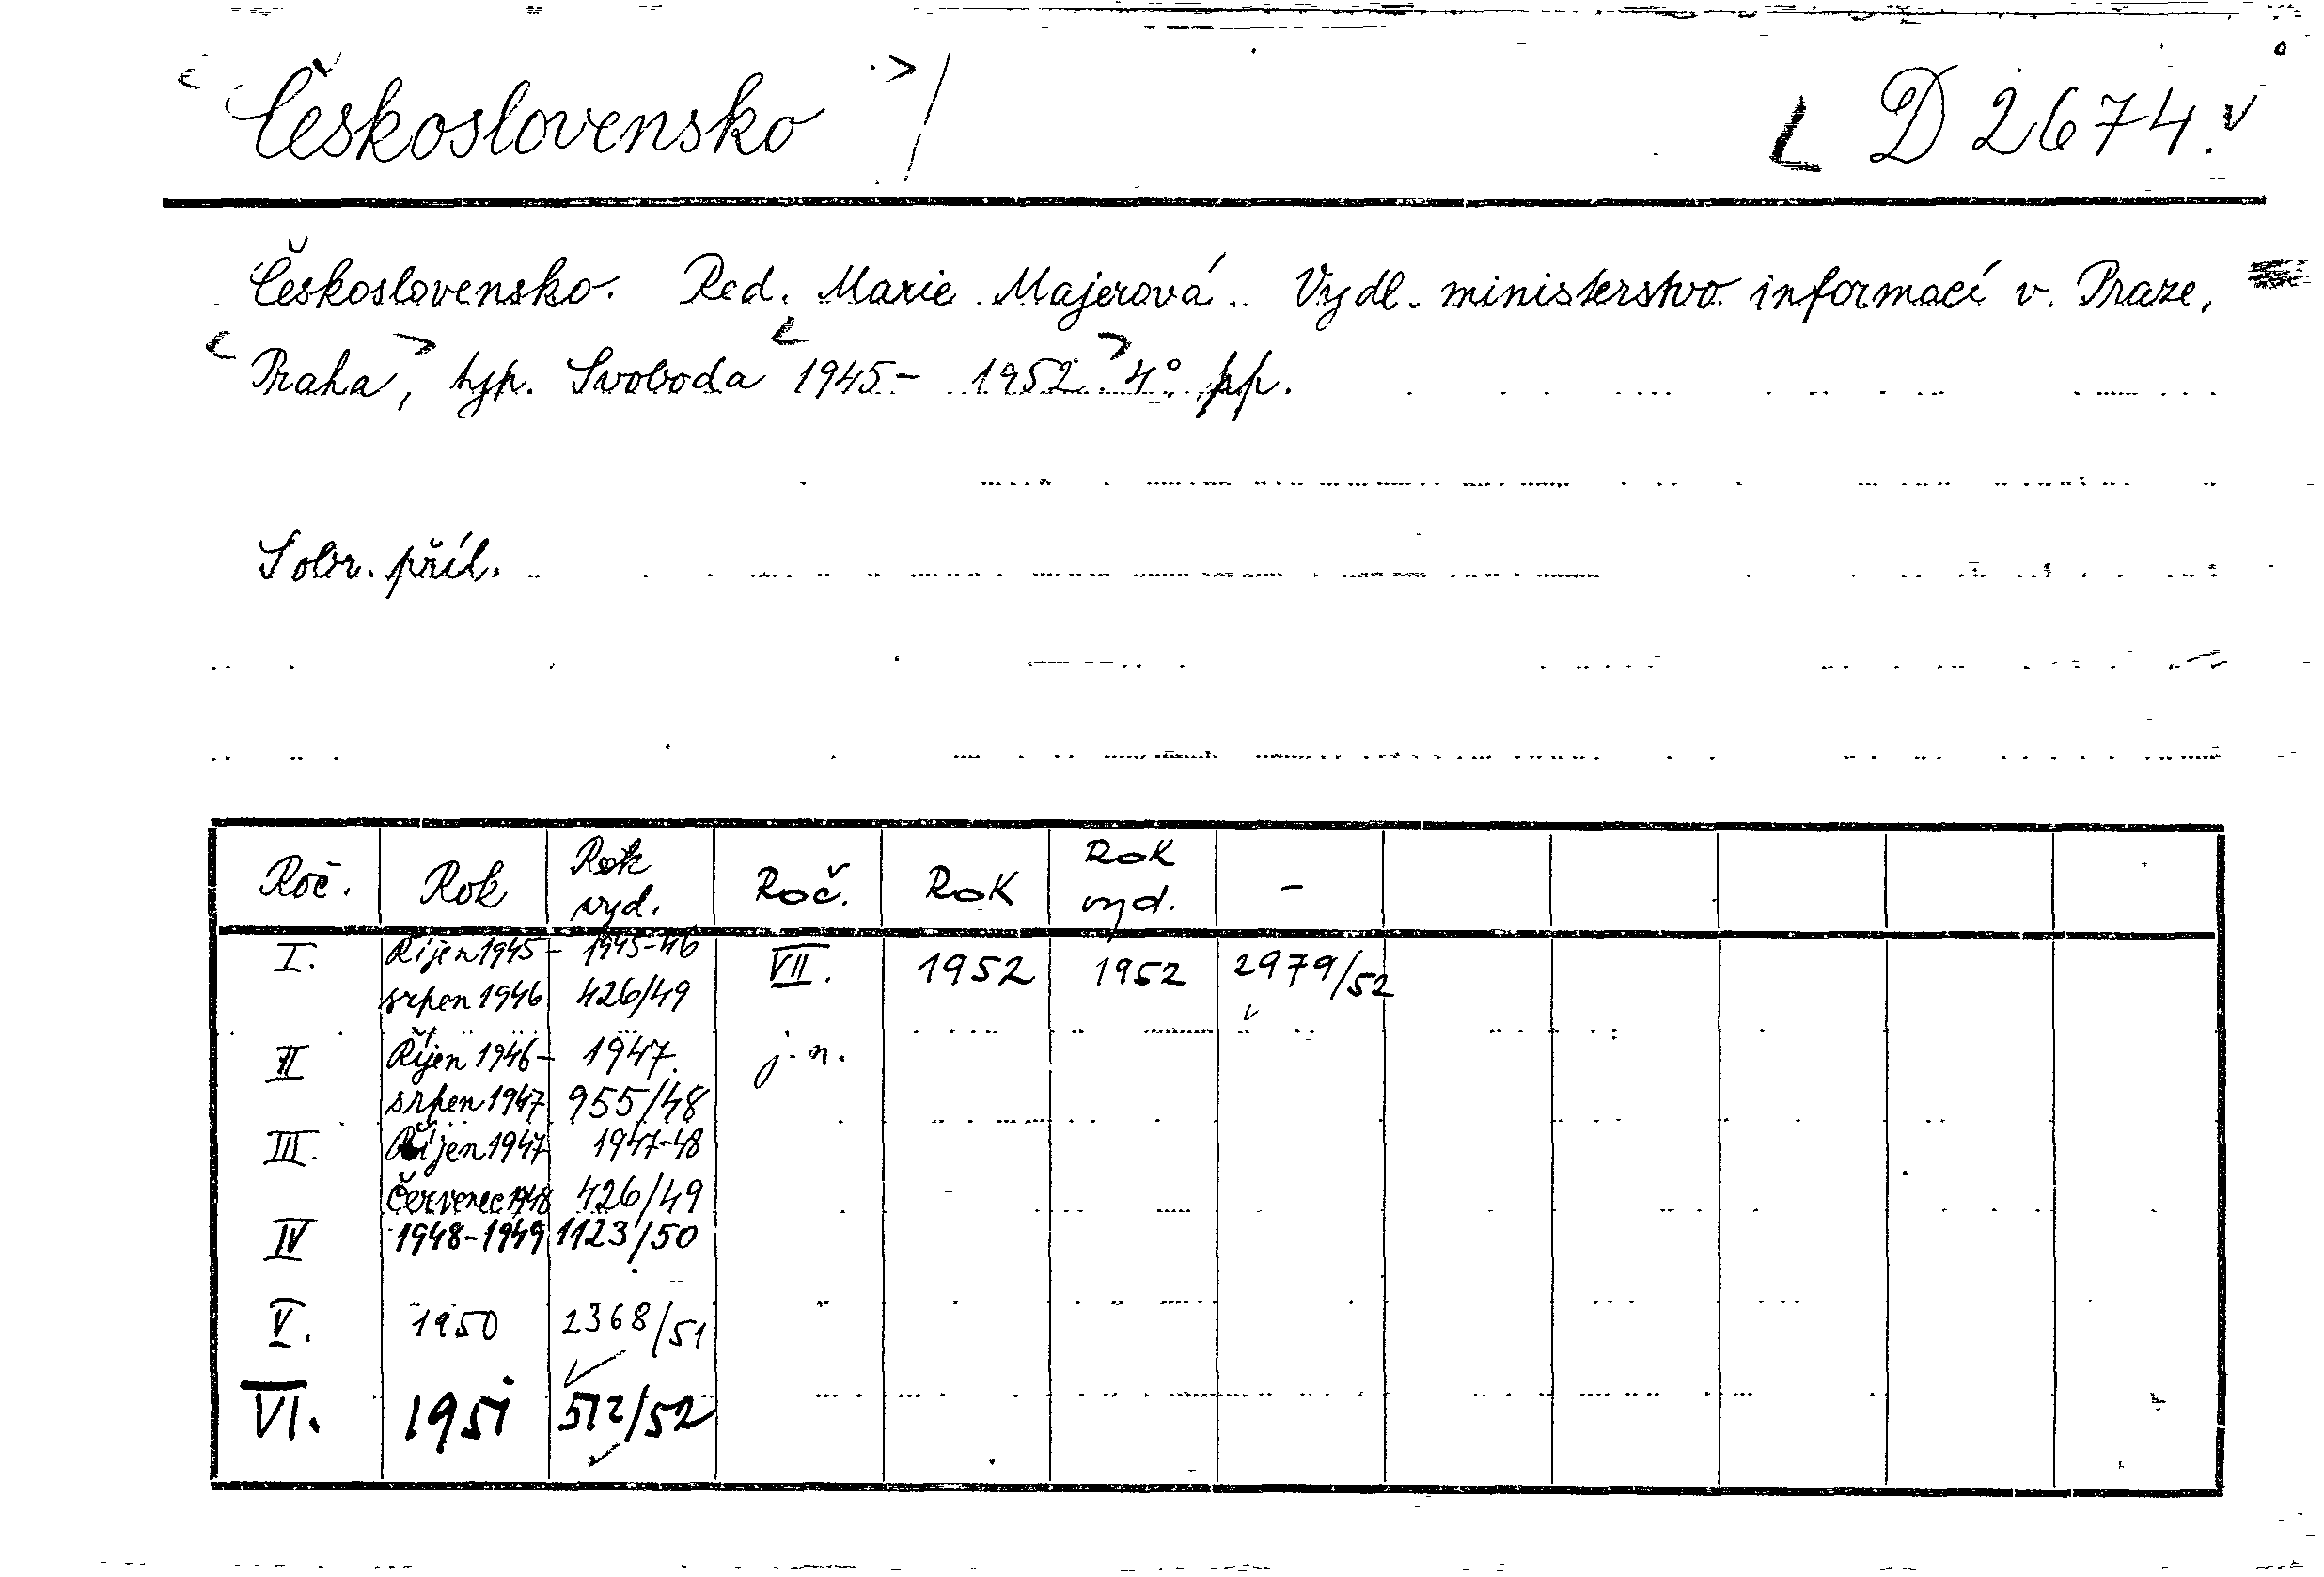 Československo D 2674.
Československo. Red. Marie Majerová. Vydl. ministerstvo informací v Praze,
Praha, typ. Svoboda 1945- 1952 4° pp.
S obr. příl.
Roč. Rok Rok vyd. Roč. Rok Rok vyd. -
I. Říjen 1945- 1945-46 VII. 1952 1952 2979/52
srpen 1946 426/49
II Říjen 1946- 1947. j. n.
srpen 1947 955/48
III. Říjen 1947 1947-48
Červenec 1948 426/49
IV 1948-1949 1123/50
V. 1950 2368/51
VI. 1951 512/52